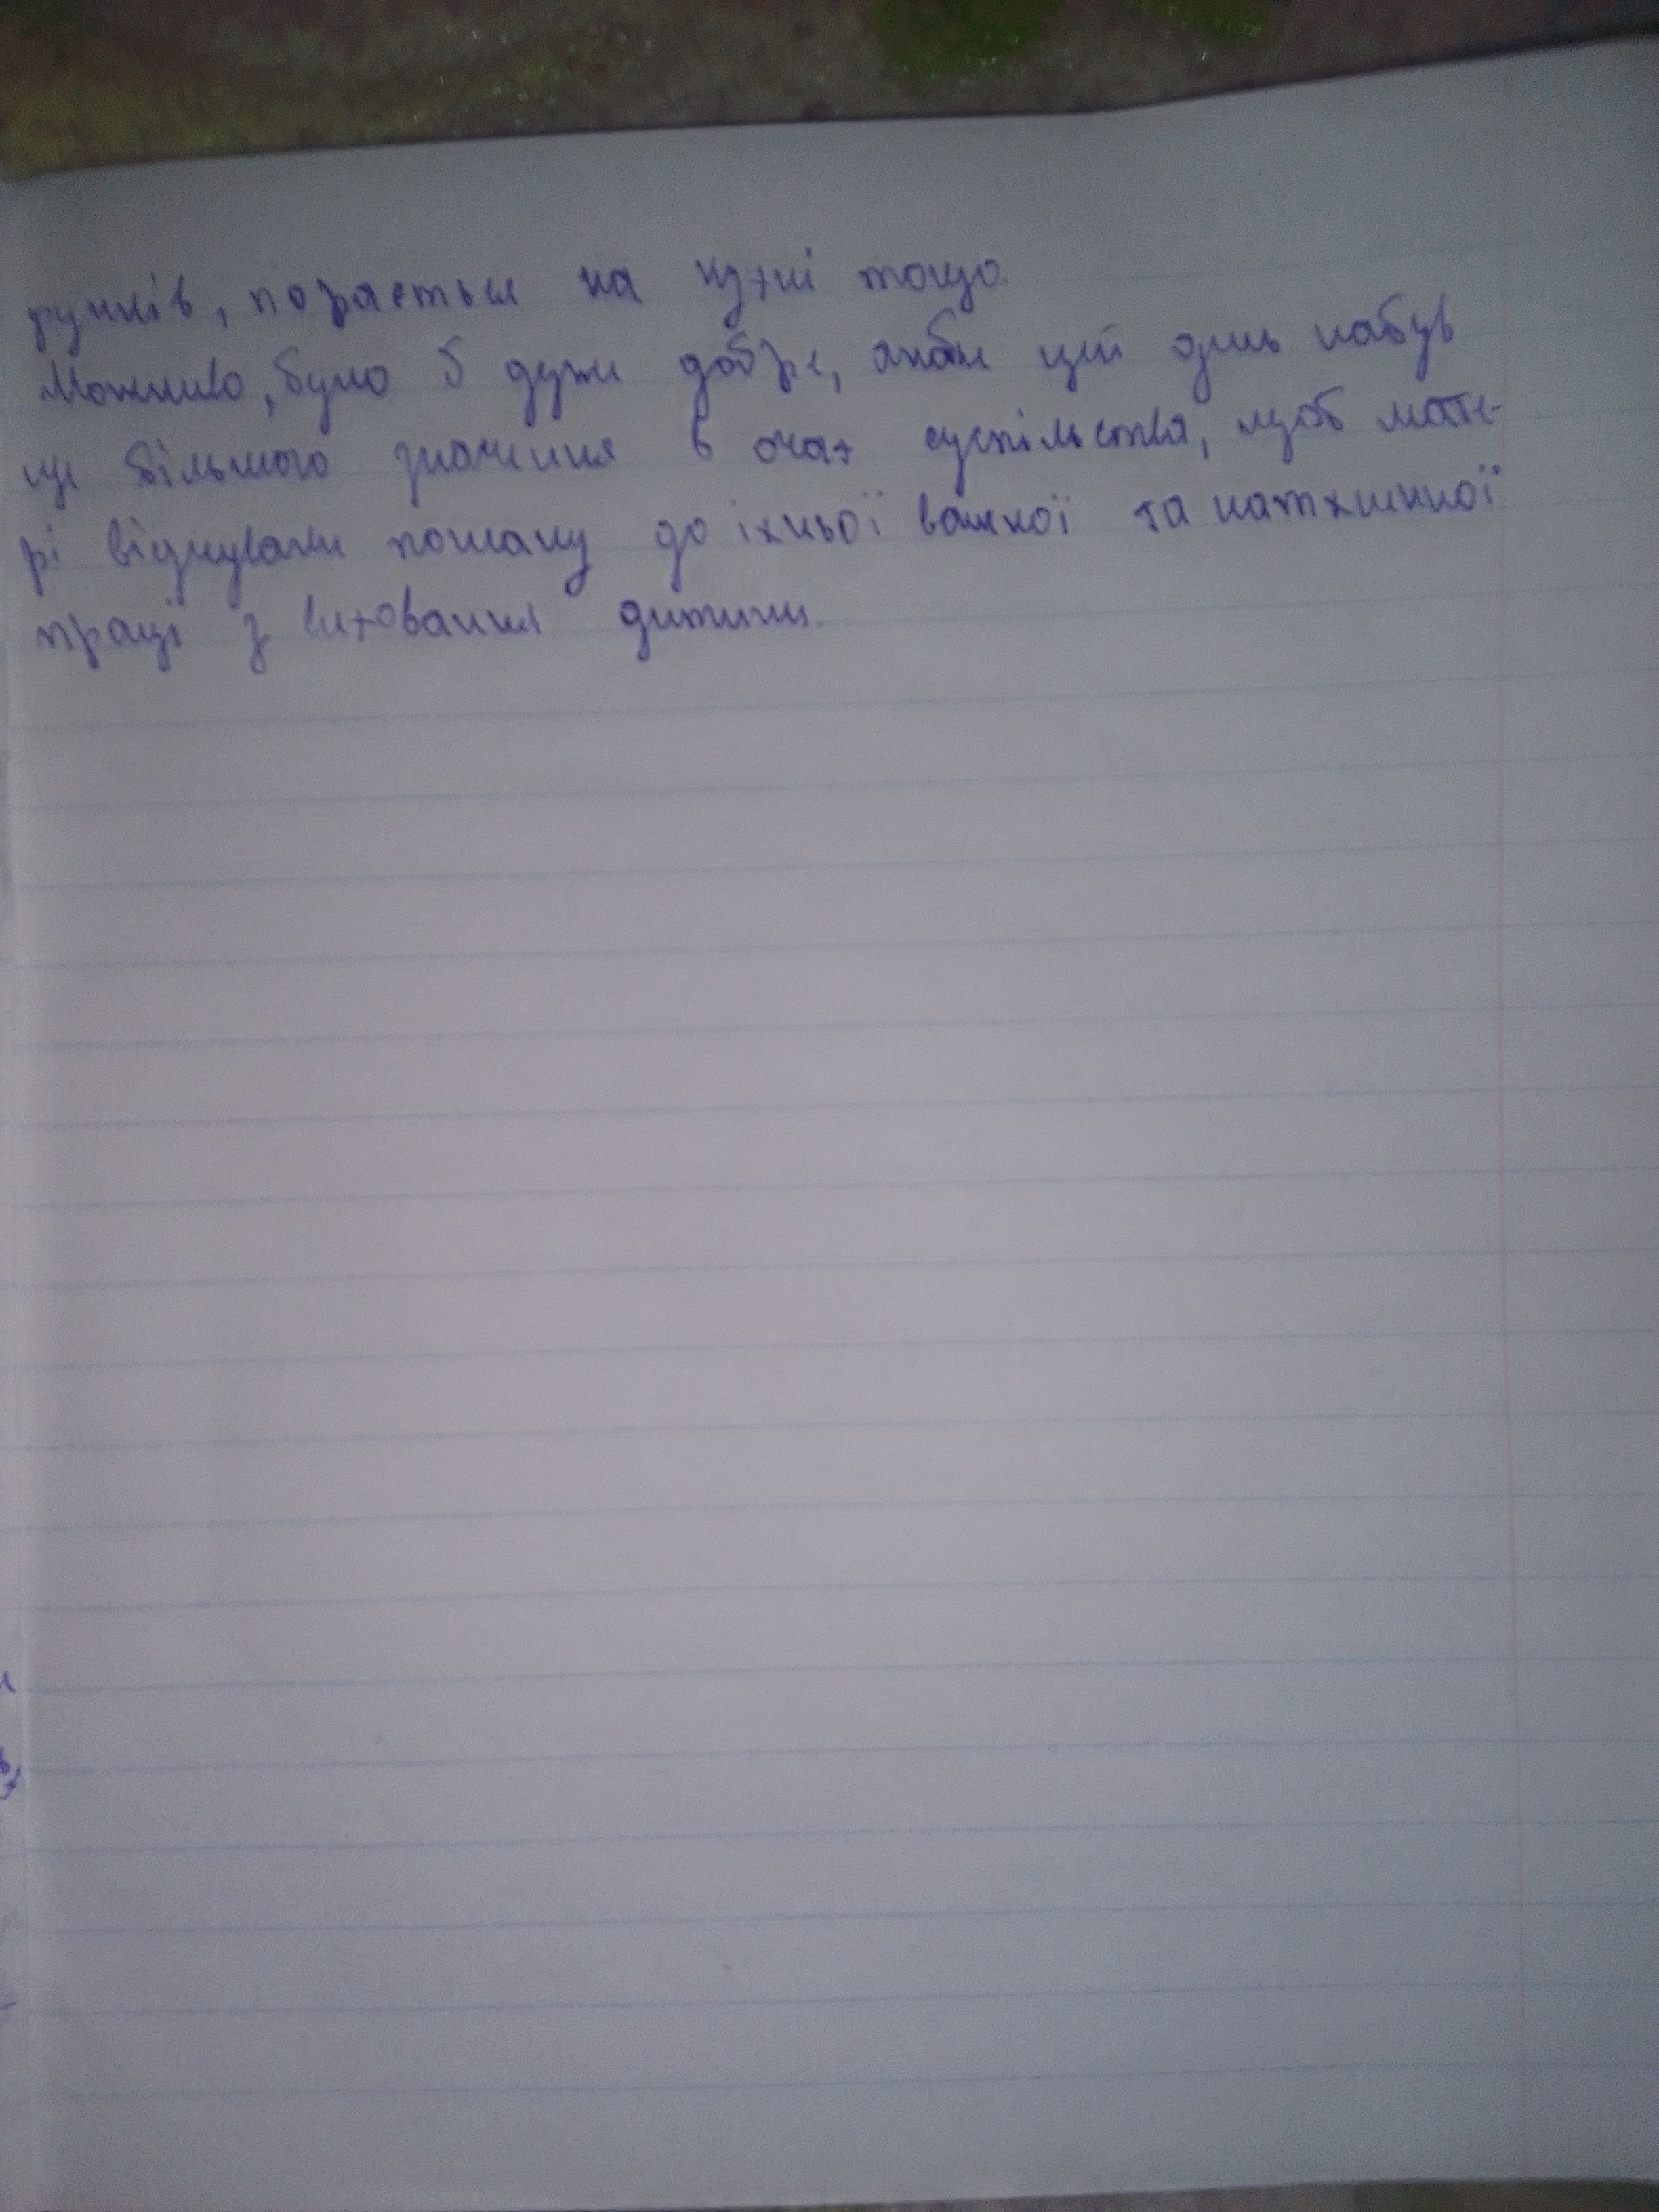 рунків, порається на кухні тощо.
Можливо, було б дуже добре, якби цей день набув
ще більшого значення в очах суспільства, щоб мате-
рі відчували пошану до їхньої важкої та натхненної
праці з виховання дитини.